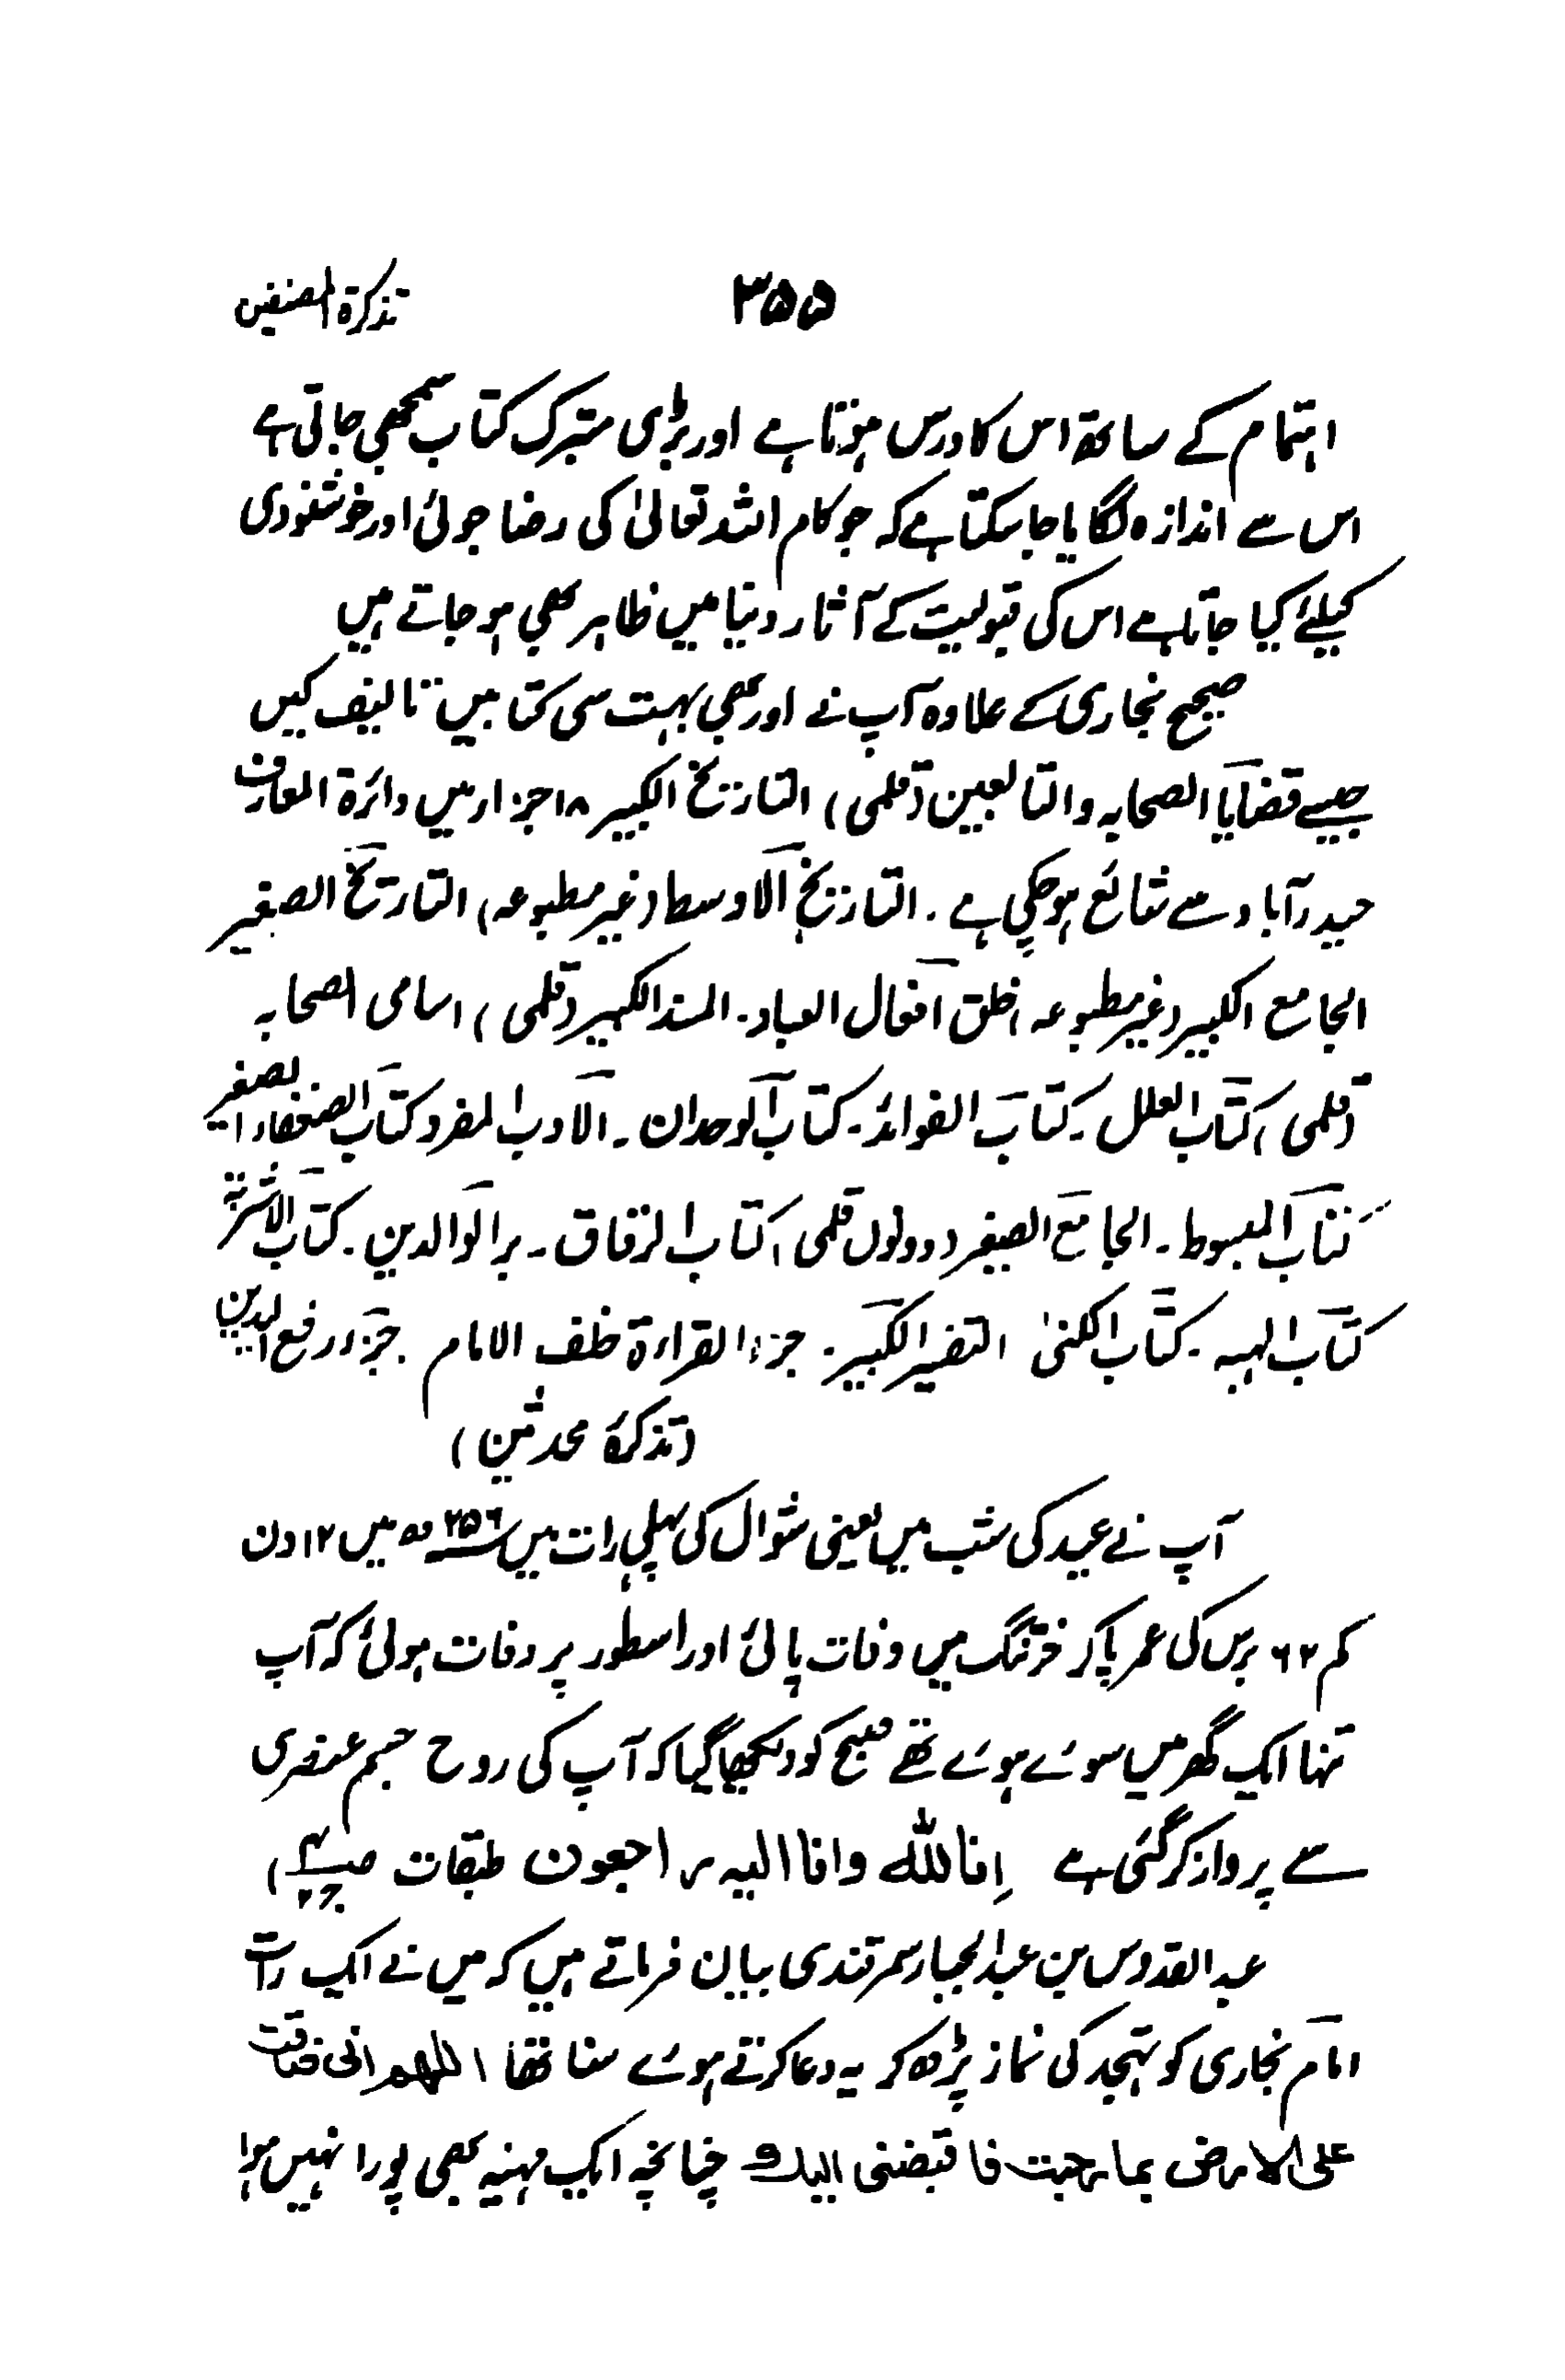 تذکرۃ المصنفین ۳۵۵
اہتمام کے ساتھ اس کا درس ہوتا ہے اور بڑی متبرک کتاب سمجھی جاتی ہے
اس سے اندازہ لگایا جا سکتا ہے کہ جو کام اللہ تعالیٰ کی رضا جوئی اور خوشنودی
کیلئے کیا جاتا ہے اس کی قبولیت کے آثار دنیا میں ظاہر بھی ہو جاتے ہیں
صحیح بخاری کے علاوہ آپ نے اور بھی بہت سی کتابیں تالیف کیں
جیسے قضایا الصحابہ والتابعین (قلمی) التاریخ الکبیر ۸ اجزاء میں دائرۃ المعارف
حیدرآباد سے شائع ہو چکی ہے . التاریخ الاوسط (غیر مطبوعہ) التاریخ الصغیر
الجامع الکبیر (غیر مطبوعہ) خلق افعال العباد۔ المسند الکبیر (قلمی) اسامی الصحابہ
(قلمی) کتاب العلل ۔ کتاب الفوائد۔ کتاب الوحدان ۔ الادب المفرد کتاب الضعفاء الصغیر
کتاب المبسوط ۔ الجامع الصغیر (دونوں قلمی) کتاب الرقاق ۔ بر الوالدین ۔ کتاب الاشربۃ
کتاب الہبہ ۔ کتاب الکنیٰ التفسیر الکبیر . جزء القراءۃ خلف الامام . جزء رفع الیدین
(تذکرۂ محدثین)
آپ نے عید کی شب میں یعنی شوال کی پہلی رات میں ۲۵۶ھ میں ۱۲ دن
کم ۶۲ برس کی عمر پا کر خرتنگ میں وفات پائی اور اسطور پر وفات ہوئی کہ آپ
تنہا ایک گھر میں سوئے ہوئے تھے صبح کو دیکھا گیا کہ آپ کی روح جسم عنصری
سے پرواز کر گئی ہے اِنا للّٰه وانا الیہ راجعون طبقات
عبد القدوس بن عبد الجبار سمرقندی بیان فرماتے ہیں کہ میں نے ایک رات
امام بخاری کو تہجد کی نماز پڑھ کر یہ دعا کرتے ہوئے سنا تھا اللهم انی ضاقت
علی الارض بما رحبت فاقبضنی الیک چنانچہ ایک مہینہ بھی پورا نہیں ہوا